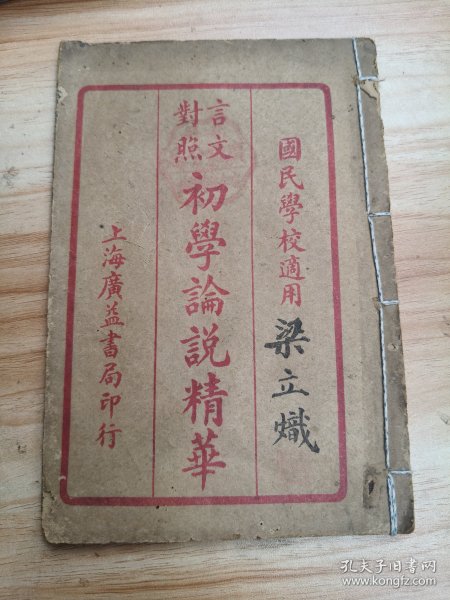 國民學校適用
梁立熾
言文對照
初學論說精華
上海廣益書局印行
孔夫子旧书网
www.kongfz.com